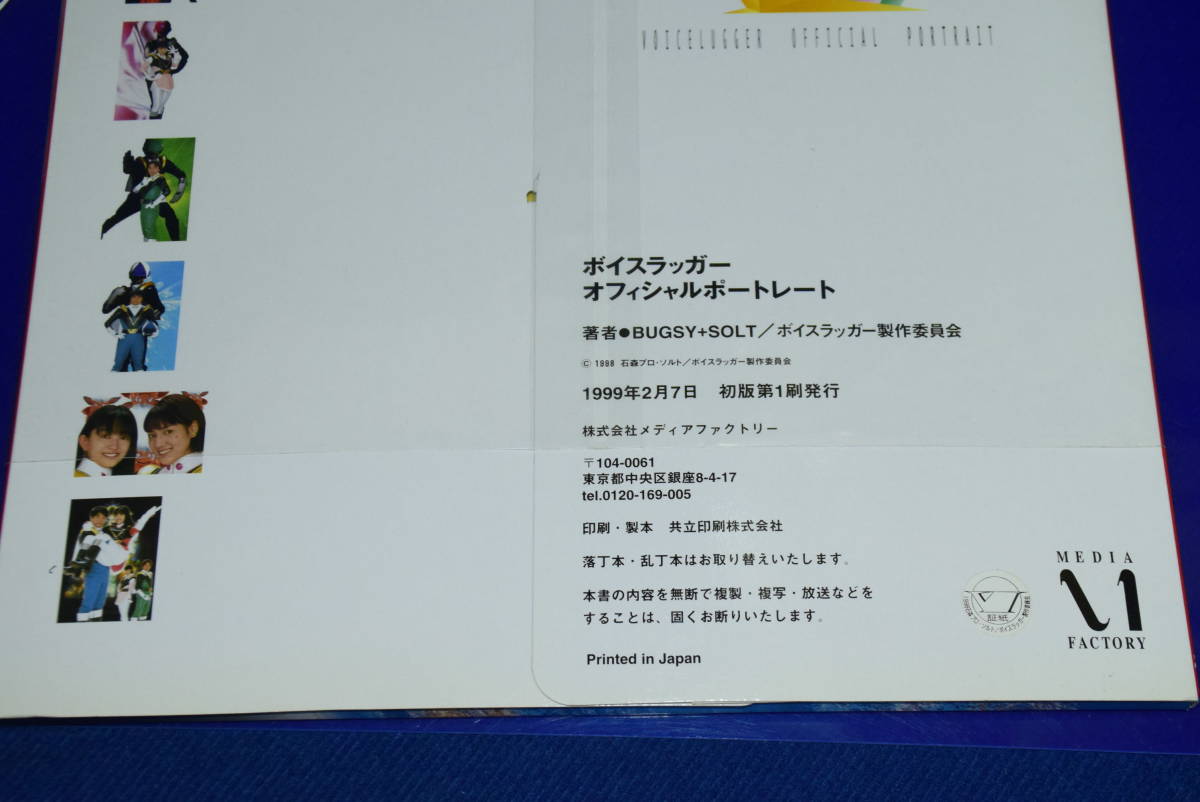 VOICELUGGER OFFICIAL PORTRAIT
ボイスラッガー
オフィシャルポートレート
著者●BUGSY+SOLT／ボイスラッガー製作委員会
© 1998 石森プロ・ソルト／ボイスラッガー製作委員会
1999年2月7日　初版第1刷発行
株式会社メディアファクトリー
〒104-0061
東京都中央区銀座8-4-17
tel.0120-169-005
印刷・製本　共立印刷株式会社
落丁本・乱丁本はお取り替えいたします。
本書の内容を無断で複製・複写・放送などを
することは、固くお断りいたします。
Printed in Japan
証紙
MEDIA
FACTORY